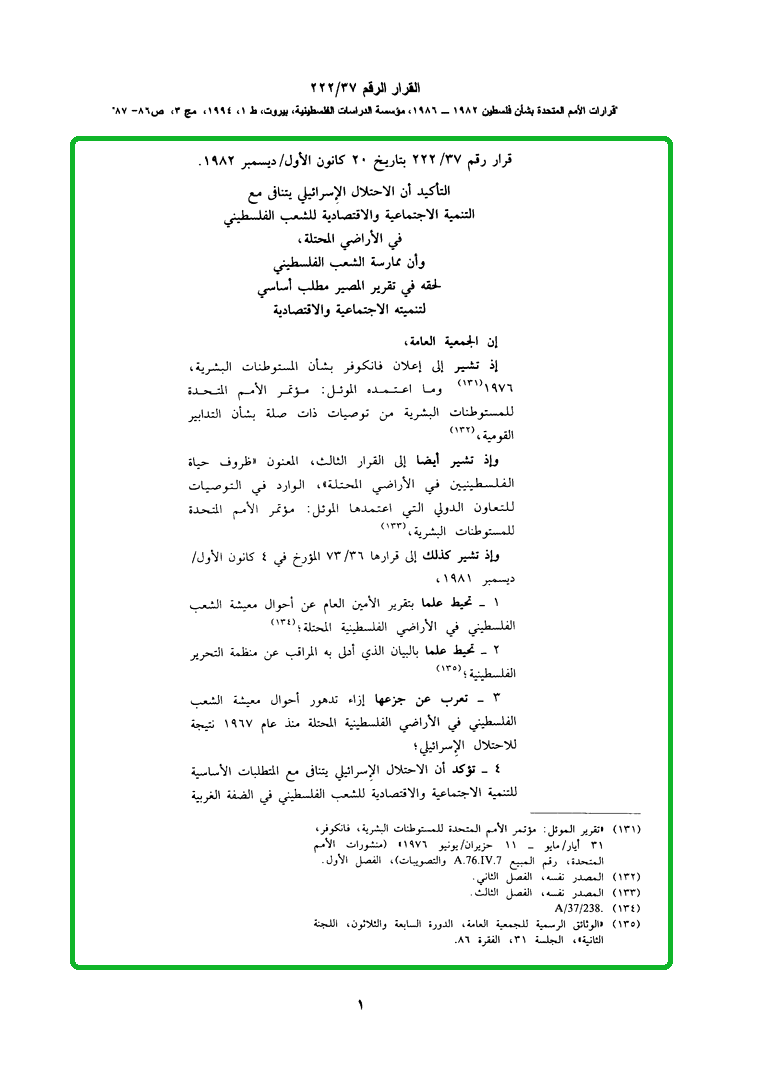 القرار الرقم ٢٢٢/٣٧
"قرارات الأمم المتحدة بشأن فلسطين ١٩٨٢ ــ ١٩٨٦، مؤسسة الدراسات الفلسطينية، بيروت، ط ١، ١٩٩٤، مج ٣، ص٨٦- ٨٧"
قرار رقم ٢٢٢/٣٧ بتاريخ ٢٠ كانون الأول/ديسمبر ١٩٨٢.
التأكيد أن الاحتلال الإسرائيلي يتنافى مع
التنمية الاجتماعية والاقتصادية للشعب الفلسطيني
في الأراضي المحتلة،
وأن ممارسة الشعب الفلسطيني
لحقه في تقرير المصير مطلب أساسي
لتنميته الاجتماعية والاقتصادية
إن الجمعية العامة،
إذ تشير إلى إعلان فانكوفر بشأن المستوطنات البشرية،
١٩٧٦(١٣١) وما اعتمده الموئل: مؤتمر الأمم المتحدة
للمستوطنات البشرية من توصيات ذات صلة بشأن التدابير
القومية،(١٣٢)
وإذ تشير أيضا إلى القرار الثالث، المعنون «ظروف حياة
الفلسطينيين في الأراضي المحتلة»، الوارد في التوصيات
للتعاون الدولي التي اعتمدها الموئل: مؤتمر الأمم المتحدة
للمستوطنات البشرية،(١٣٣)
وإذ تشير كذلك إلى قرارها ٧٣/٣٦ المؤرخ في ٤ كانون الأول/
ديسمبر ١٩٨١،
١ ـ تحيط علما بتقرير الأمين العام عن أحوال معيشة الشعب
الفلسطيني في الأراضي الفلسطينية المحتلة؛(١٣٤)
٢ ـ تحيط علما بالبيان الذي أدلى به المراقب عن منظمة التحرير
الفلسطينية؛(١٣٥)
٣ ـ تعرب عن جزعها إزاء تدهور أحوال معيشة الشعب
الفلسطيني في الأراضي الفلسطينية المحتلة منذ عام ١٩٦٧ نتيجة
للاحتلال الإسرائيلي؛
٤ ـ تؤكد أن الاحتلال الإسرائيلي يتنافى مع المتطلبات الأساسية
للتنمية الاجتماعية والاقتصادية للشعب الفلسطيني في الضفة الغربية
(١٣١) «تقرير الموئل: مؤتمر الأمم المتحدة للمستوطنات البشرية، فانكوفر،
٣١ أيار/مايو ــ ١١ حزيران/يونيو ١٩٧٦» (منشورات الأمم
المتحدة، رقم المبيع A.76.IV.7 والتصويبات)، الفصل الأول.
(١٣٢) المصدر نفسه، الفصل الثاني.
(١٣٣) المصدر نفسه، الفصل الثالث.
(١٣٤) A/37/238.
(١٣٥) «الوثائق الرسمية للجمعية العامة، الدورة السابعة والثلاثون، اللجنة
الثانية»، الجلسة ٣١، الفقرة ٨٦.
١